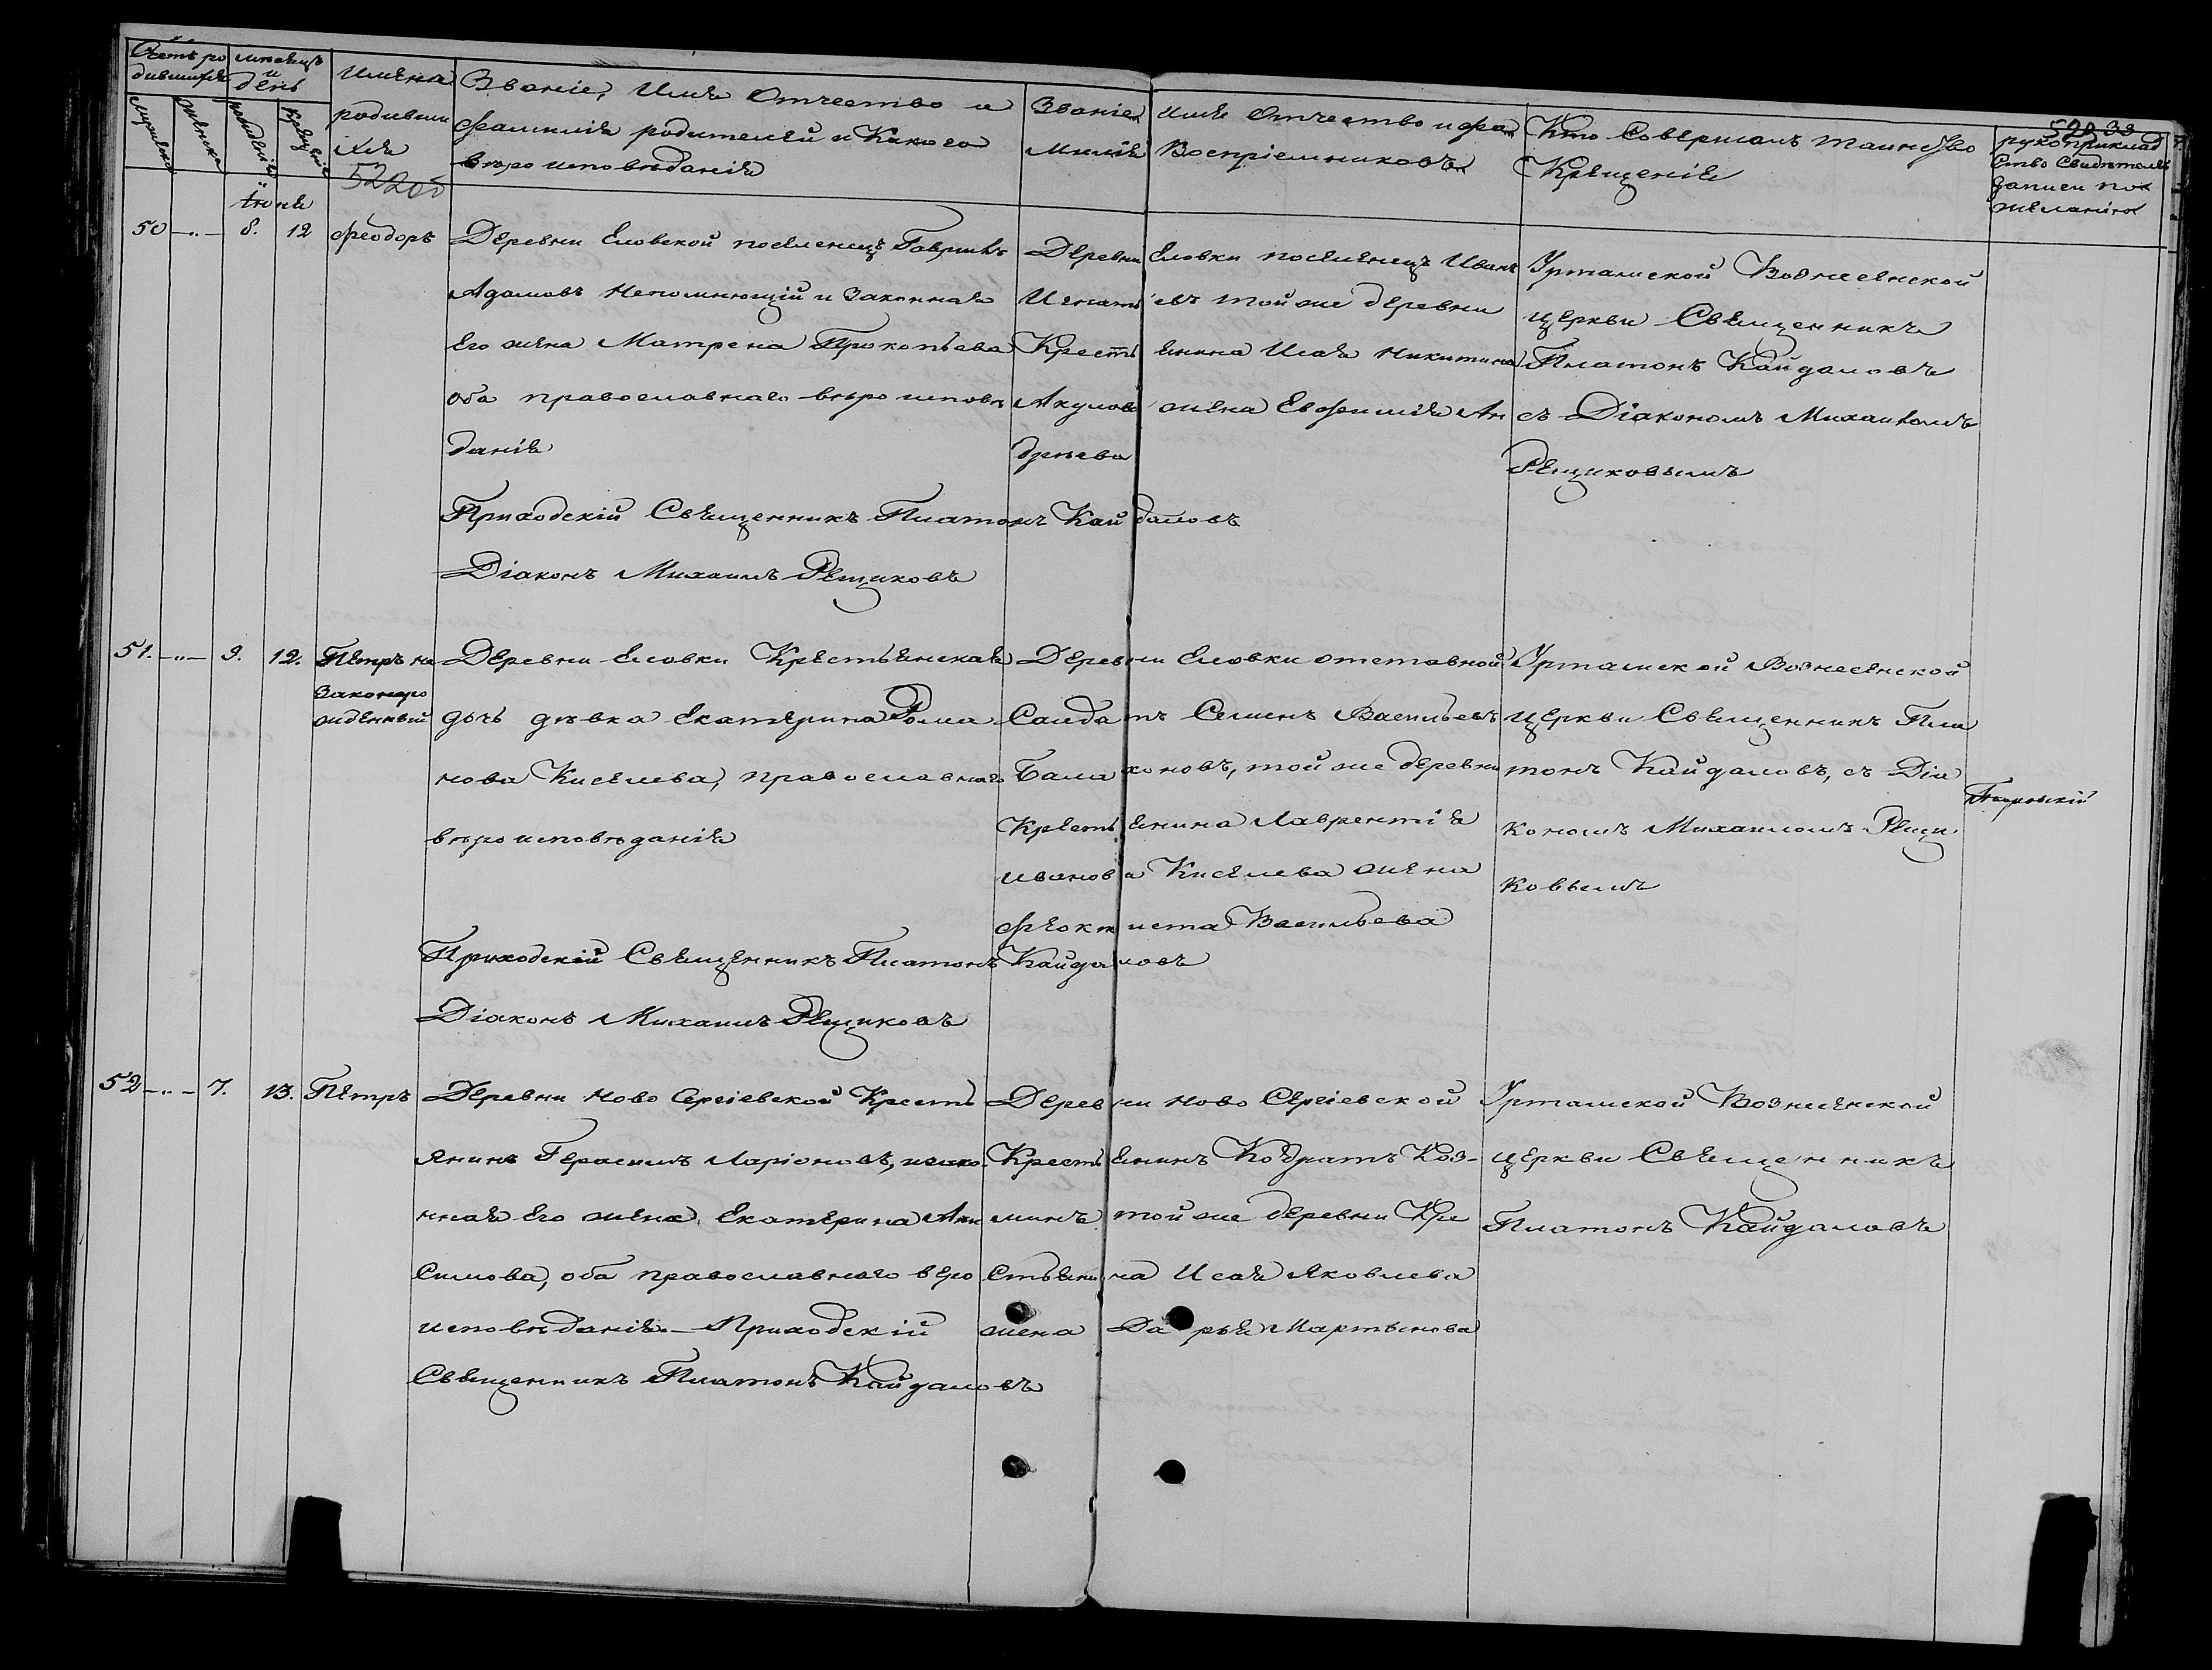 Счетъ ро
дившихся
мѣсяцъ
и
день
Имена
родивши
хся
Званіе, Имя Отчество и
фамилія родителей и Какого
вѣро исповѣданія
Званіе, имя отчество и фа
милія Воспріемниковъ
Кто Совершалъ таинство
Крещенія
рукоприклад
ство Свидѣтелей
записи по
желанію
мужска
женска
рожденія
крещенія
522об
Іюня
50 -"- 8. 12 Феодоръ
Деревни Еловской поселенецъ Гавріилъ
Адамовъ Непомнющій и Законная
Его жена Матрена Прокопьева
оба православнаго вѣро исповѣ
данія
Деревни Еловки поселенецъ Иванъ
Игнатьевъ той же деревни
Крестьянина Исая Никитина
Акулова жена Евфимія Ан
дрѣева
Урташской Вознесенской
церкви Священникъ
Платонъ Кайдаловъ
съ Діакономъ Михаиломъ
Рещиковымъ
Приходскій Священникъ Платонъ Кайдаловъ
Діаконъ Михаилъ Рещиковъ
51. -"- 9. 12. Петръ не
законоро
жденный
Деревни Еловки Крестьянская
дочь дѣвка Екатерина Рома
нова Киселева, православнаго
вѣро исповѣданія
Деревни Еловки отставной
Салдатъ Семенъ Васильевъ
Балахоновъ, той же деревни
Крестьянина Лаврентія
иванова Киселева жена
Феоктиста Васильева
Урташской Вознесенской
церкви Священникъ Пла
тонъ Кайдаловъ, съ Діа
кономъ Михаиломъ Рещи
ковымъ
Приходскій Священникъ Платонъ Кайдаловъ
Діаконъ Михаилъ Рещиковъ
52 -"- 7. 13. Петръ
Деревни Ново Сергіевской Кресть
янинъ Герасимъ Ларіоновъ, изако
нная Его жена, Екатерина Ани
симова, оба православнаго веро
исповѣданія - Приходскій
Священникъ Платонъ Кайдаловъ
Деревни Ново Сергіевской
Крестьянинъ Кодратъ Коз-
минъ той же деревни Кре
стьянина Исая Яковлева
жена Дарья Мартынова
Урташской Вознесенской
церкви Священникъ
Платонъ Кайдаловъ